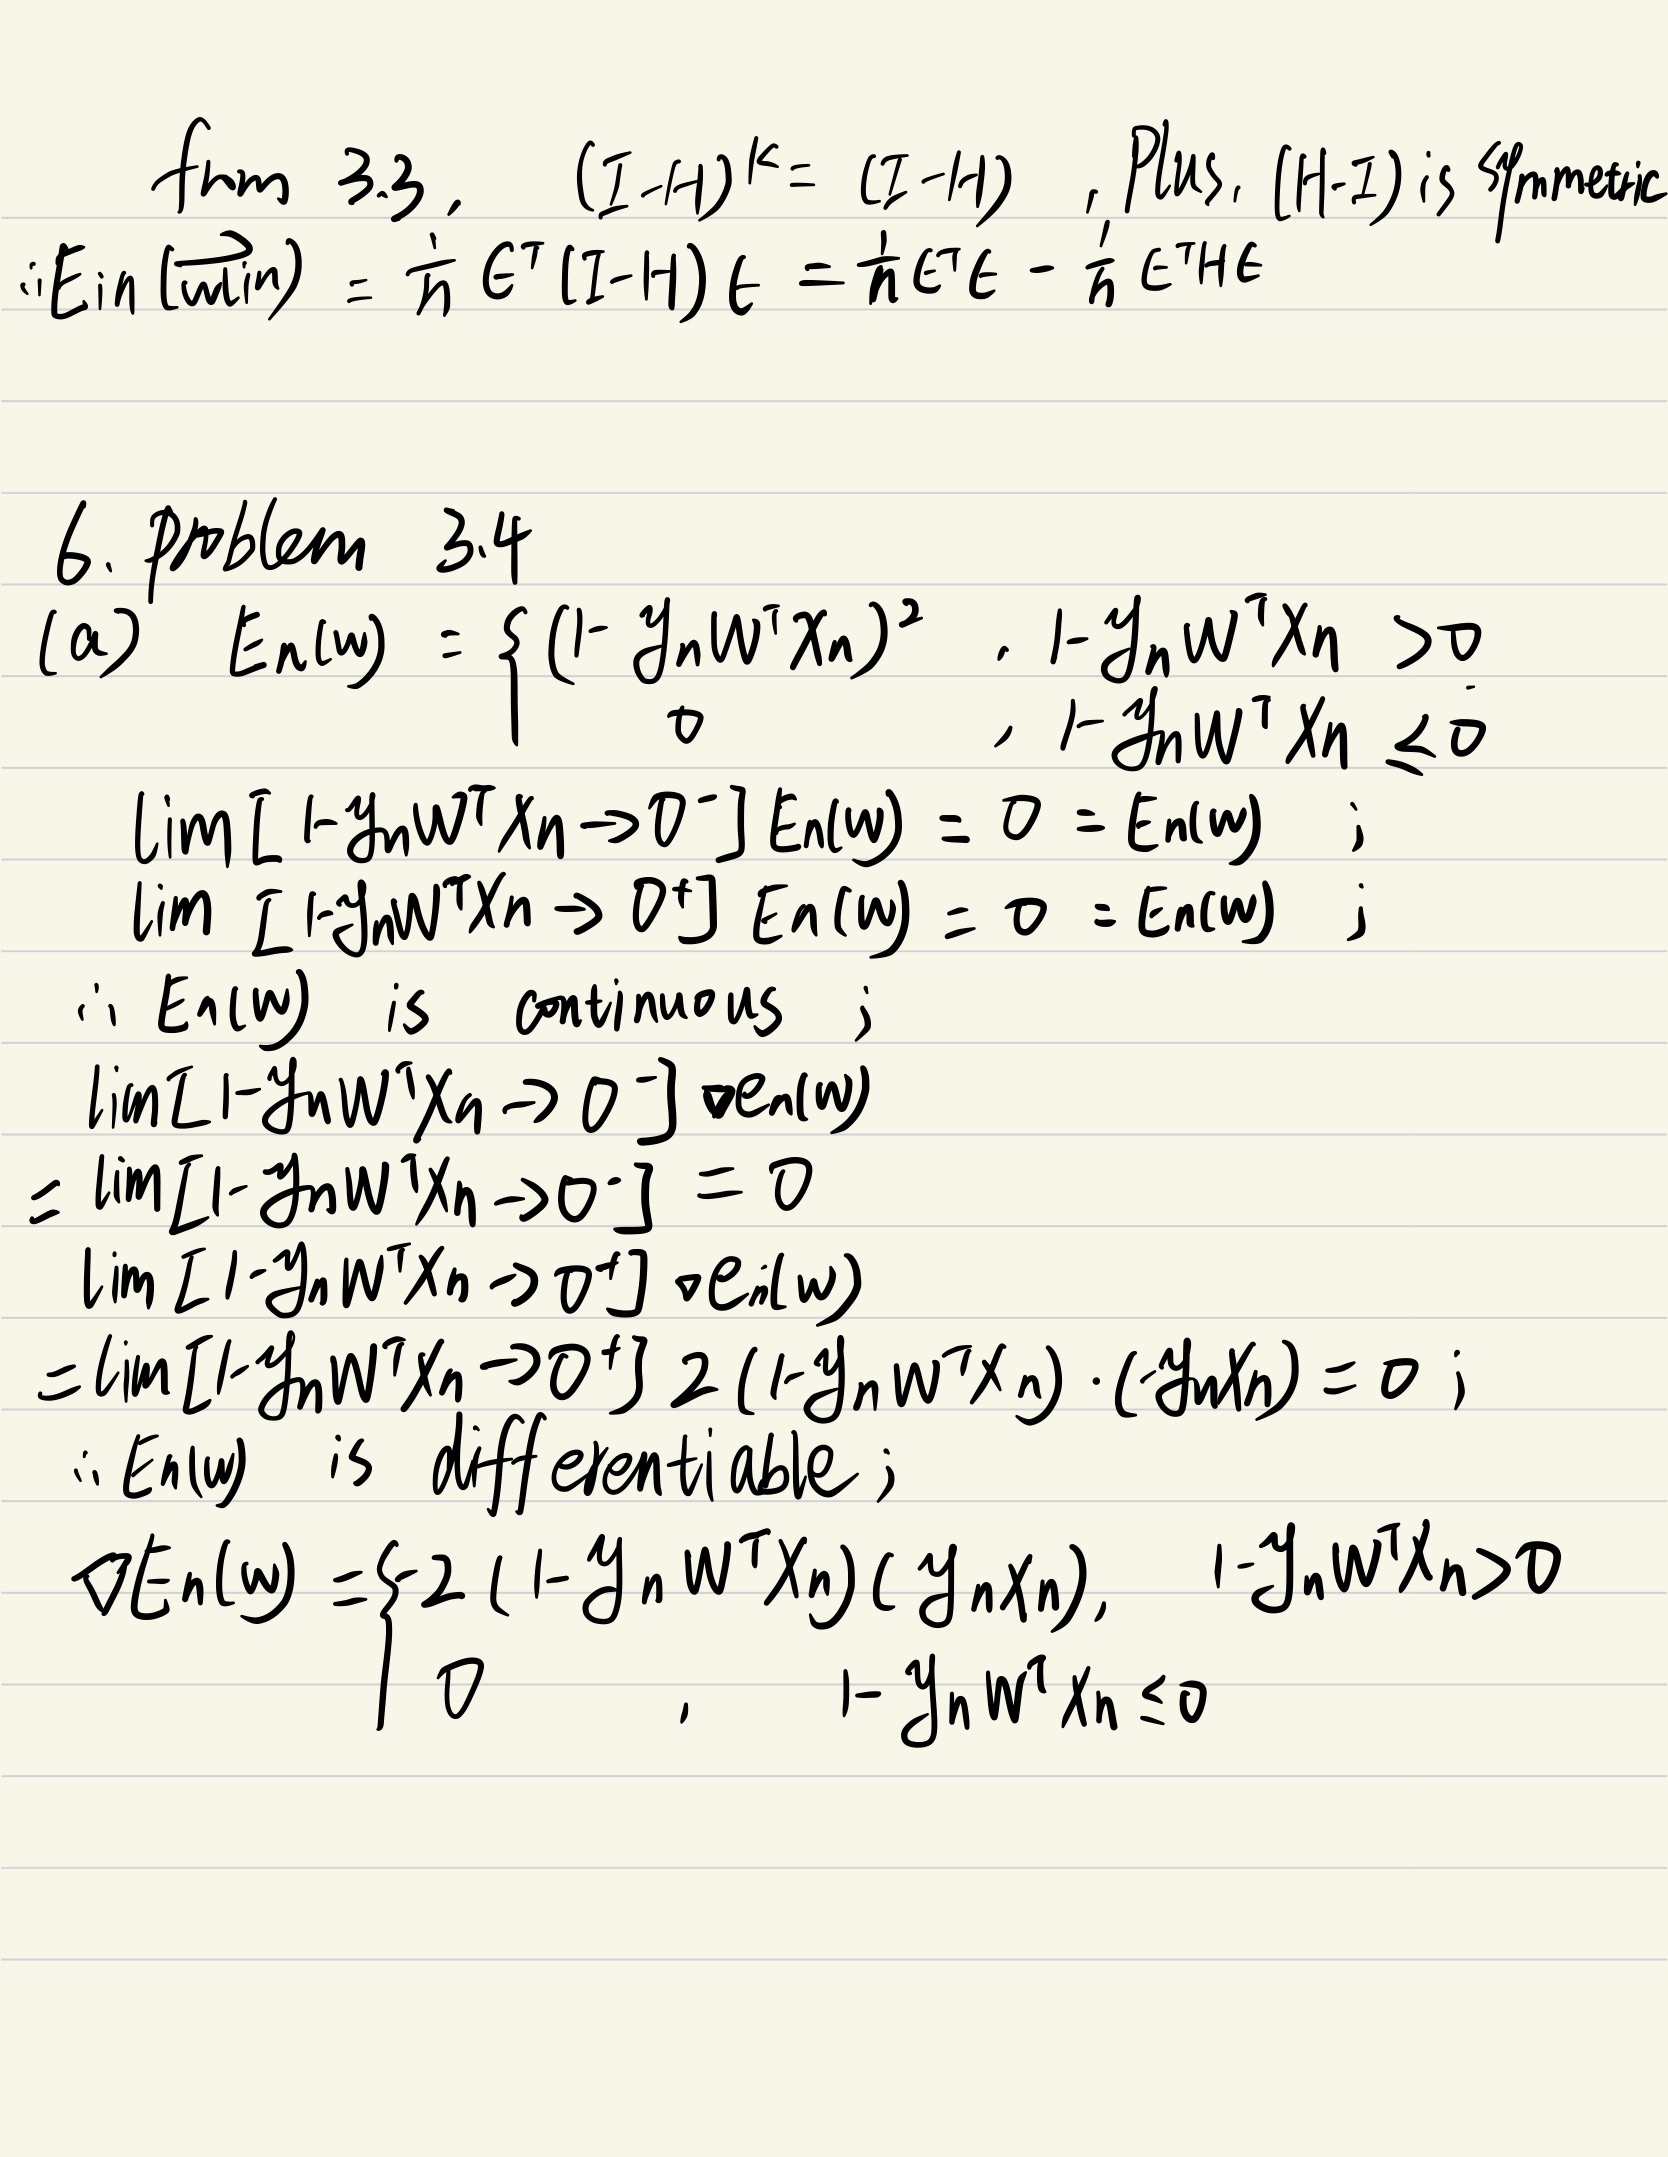 from 3.3, (I-H)^K = (I-H) , Plus, (H-I) is symmetric
∴ Ein(w⃗lin) = 1/n ϵ^T (I-H) ϵ = 1/n ϵ^T ϵ - 1/n ϵ^T H ϵ
6. problem 3.4
(a) En(w) = { (1- ynW^T Xn)^2 , 1- yn W^T Xn > 0
0 , 1- yn W^T Xn ≤ 0
lim [ 1- ynW^T Xn → 0^- ] En(w) = 0 = En(w) ;
lim [ 1- ynW^T Xn → 0^+ ] En(w) = 0 = En(w) ;
∴ En(w) is continuous ;
lim [ 1- ynW^T Xn → 0^- ] ∇en(w)
= lim [ 1- ynW^T Xn → 0^- ] = 0
lim [ 1- ynW^T Xn → 0^+ ] ∇en(w)
= lim [ 1- ynW^T Xn → 0^+ ] 2 (1- yn W^T Xn) · (-ynXn) = 0 ;
∴ En(w) is differentiable ;
∇En(w) = { -2 ( 1- yn W^T Xn) ( yn Xn ), 1- yn W^T Xn > 0
0 , 1- yn W^T Xn ≤ 0